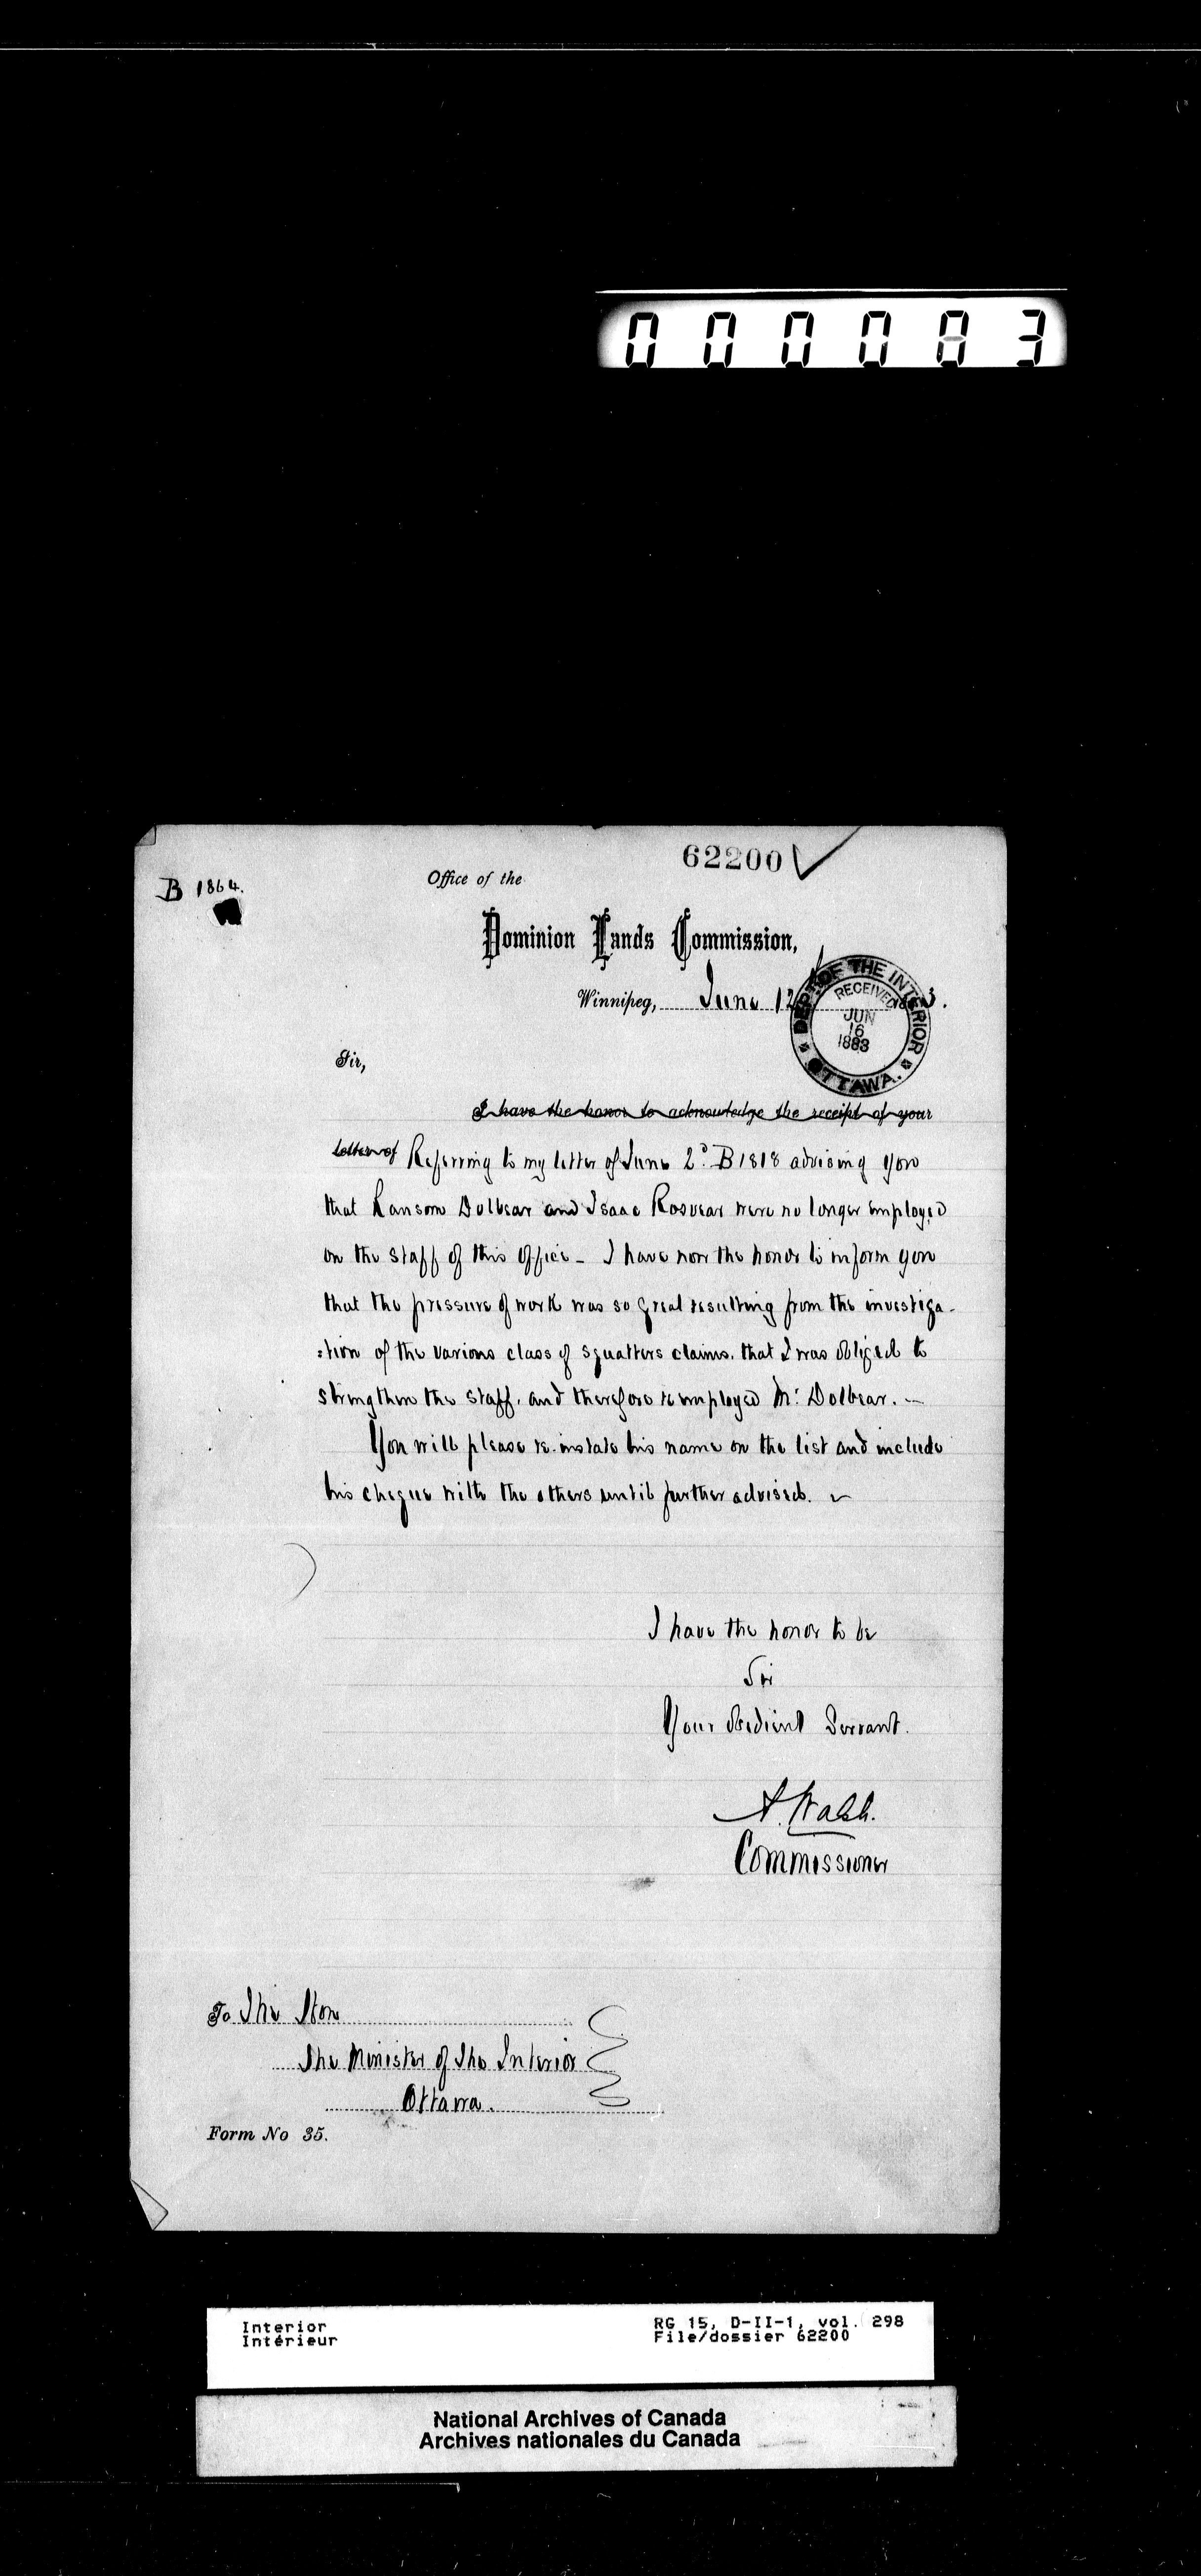 000083
62200
B 1864.
Office of the
Dominion Lands Commission,
Winnipeg, June 12 1883.
DEPT. OF THE INTERIOR
RECEIVED
JUN
16
1883
OTTAWA.
Sir,
I have the honor to acknowledge the receipt of your
letter of Referring to my letter of June 2d. B 1818 advising you
that Ransom Dolbear and Isaac Rosvear were no longer employed
on the staff of this office - I have now the honor to inform you
that the pressure of work was so great resulting from the investiga-
:tion of the various class of squatters claims. that I was obliged to
strengthen the staff. and therefore reemployed Mr. Dolbear. —
You will please re-instate his name on the list and include
his cheque with the others until further advised.
I have the honor to be
Sir
Your obedient Servant.
A. Walsh.
Commissioner
To The Hon
The Minister of The Interior
Ottawa.
Form No 35.
Interior RG 15, D-II-1, vol. 298
Intérieur File/dossier 62200
National Archives of Canada
Archives nationales du Canada